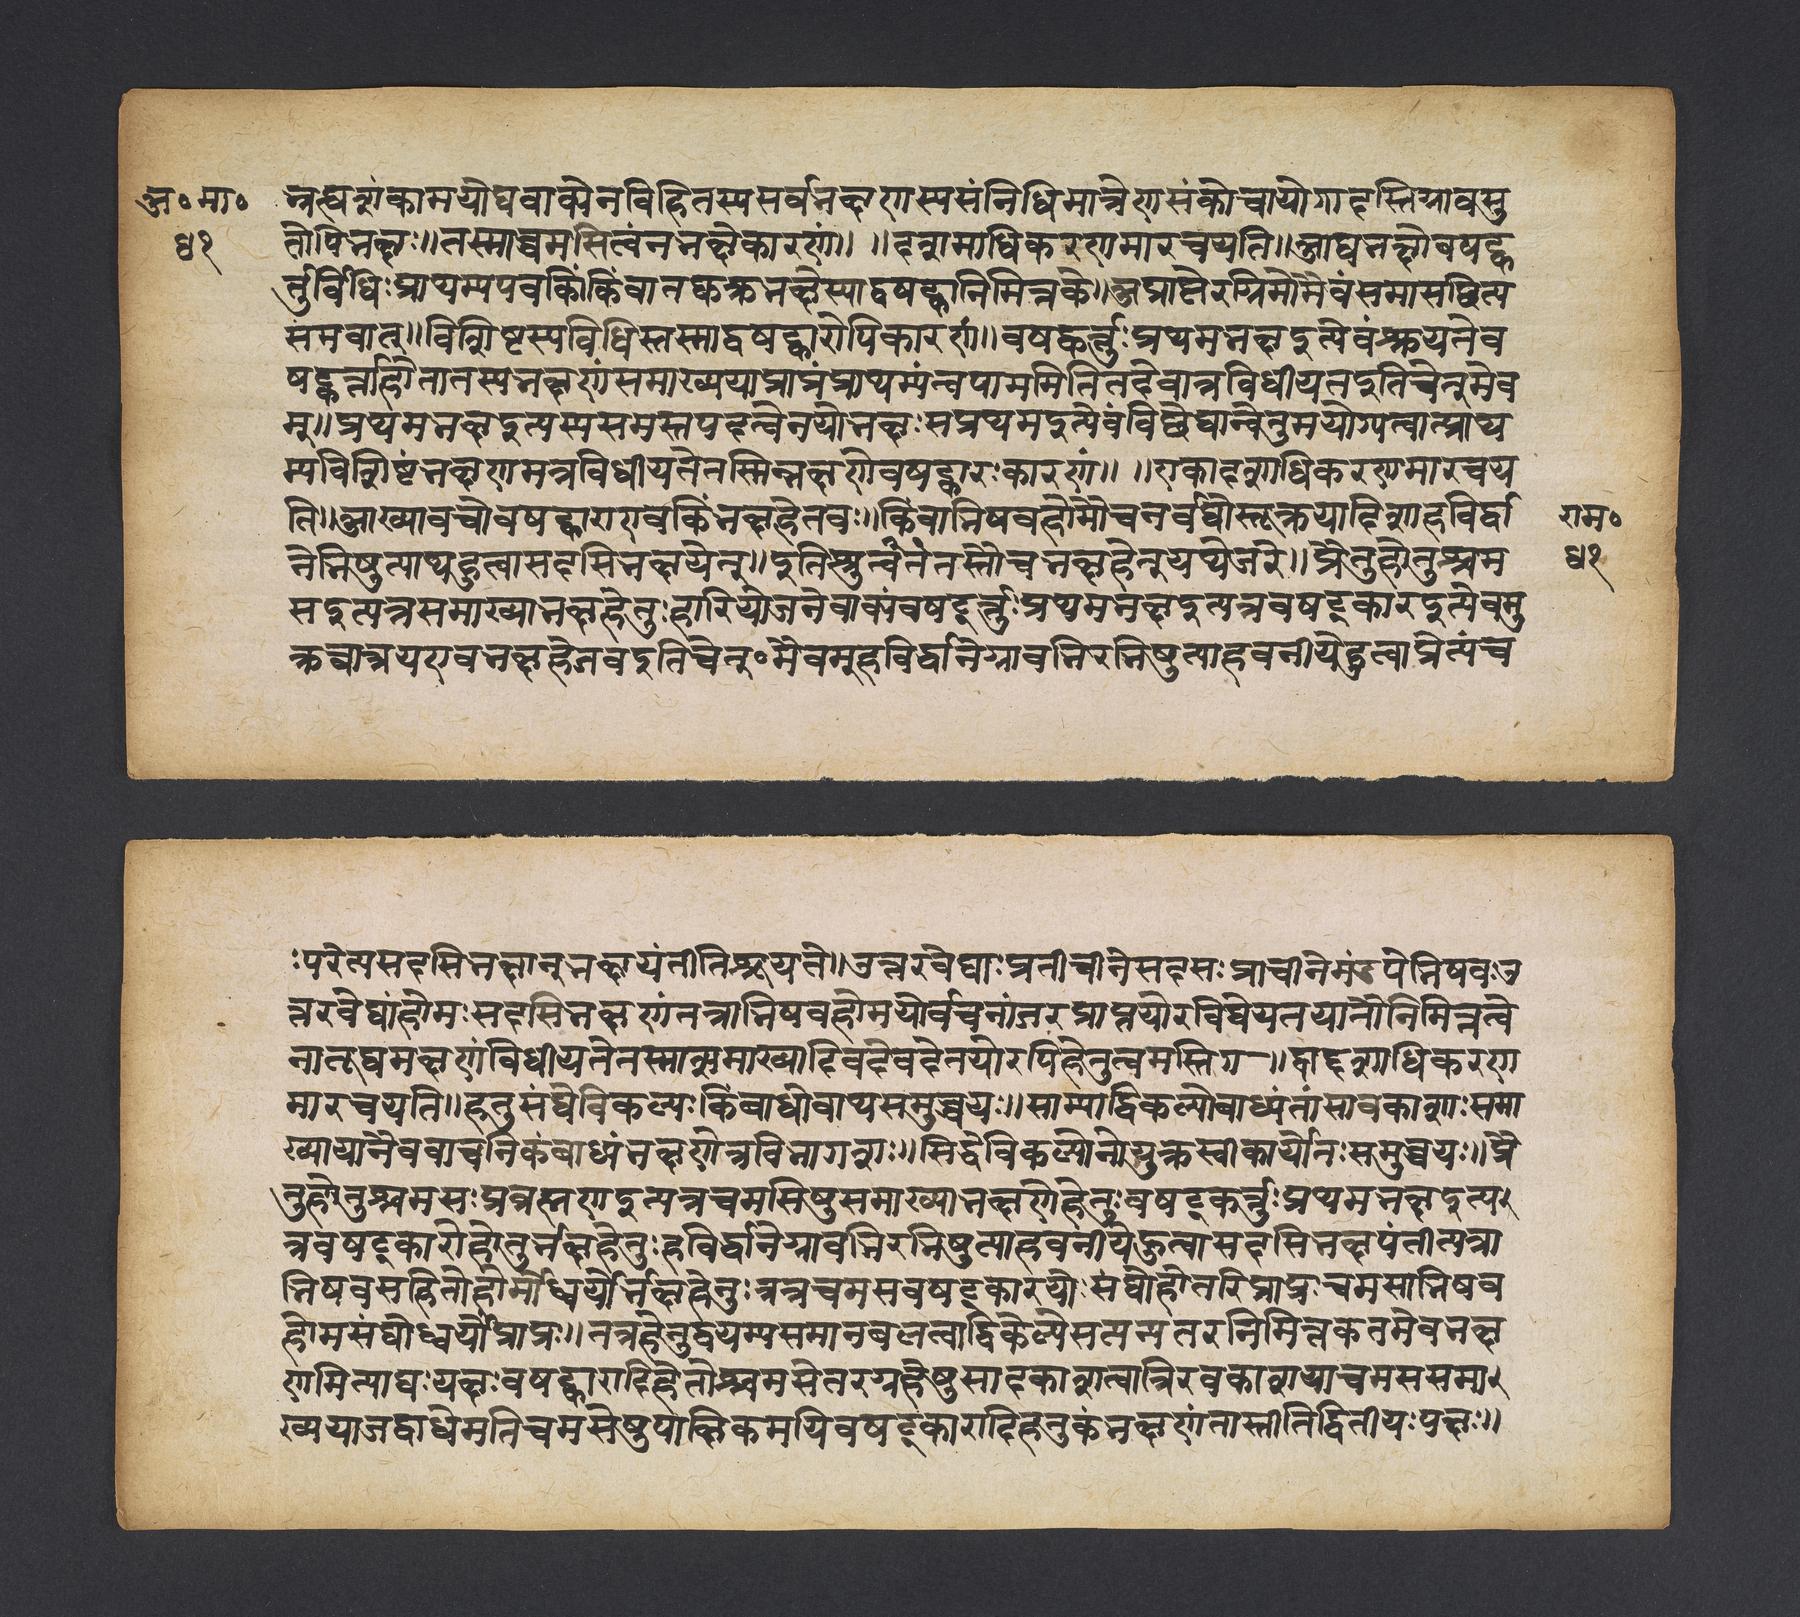 अ॰ मा॰
५१
न्नत्पन्नशंकामयोपवाक्येनविहितस्यसर्वभक्षणस्यसंनिधिमात्रेणसंकोचायोगादस्तिग्रावस्तु
तोपिभक्षः॥तस्माच्चमसित्वंनभक्षेकारणं॥ ॥दशमाधिकरणमारचयति॥आद्यभक्षोवषट्क
र्तुर्विधिःप्राथम्यएवकिंकिंवातद्युक्तभक्षेस्याद्वषट्कानिमित्तके॥अप्राप्तेरग्रिमोमैवंसमासस्थित्य
संभवात्॥विशिष्टस्यविधिस्तस्माद्वषट्कारोपिकारणं॥वषट्कर्त्तुःप्रथमभक्षइत्येवंश्रूयतेव
षट्कर्त्ताहोतातस्यभक्षणंसमाख्ययाप्राप्तंप्राथम्यंत्वप्राप्तमितितदेवात्रविधीयतइतिचेन्मैव
म्॥प्रथमभक्षइत्यस्यसमस्तपदत्वेनयोभक्षःसप्रथमइत्येवंविच्छेद्यान्वेतुमयोग्यत्वात्प्राथ
म्यविशिष्टंभक्षणमत्रविधीयतेतस्मिन्भक्षणेवषट्कारःकारणं॥ ॥एकादशाधिकरणमारचय
ति॥आख्यावचोवषट्काराएवकिंभक्षहेतवः॥किंवाभिषवहोमौचनवर्षधौस्तूक्तयादिशाहविर्द्धा
नेभिषुत्याथहुत्वासदसिभक्षयेत्॥इतिस्तुत्वंनतस्तौचभक्षहेतूयथेजरे॥प्रैतुहोतुश्चम
सइत्यत्रसमाख्याभक्षहेतुःहारियोजनेवाक्यंवषट्कर्त्तुःप्रथमभक्षइत्यत्रवषट्कारइत्येवमु
क्तत्वात्त्रयएवभक्षहेतवइतिचेत्॰मैवम्हविर्द्धानेग्रावभिरभिषुत्याहवनीयेहुत्वाप्रत्यंच
राम॰
५१
ःपरेत्यसदसिभक्षान्भक्षयंतीतिश्रूयते॥उत्तरवेद्याःप्रतीचीनेसदसःप्राचीनेमंडपेभिषवःउ
त्तरवेद्यांहोमःसदसिभक्षणंतत्राभिषवहोमयोर्वचनांतरप्राप्तयोरविधेयतयातौनिमित्तत्वे
नानूद्यमक्षणंविधीयतेतस्मात्समाख्यादिवदेवदेतयोरपिहेतुत्वमस्तिग-॥द्वादशाधिकरण
मारचयति॥हेतुसंघेविकल्पःकिंबाधोवाथसमुच्चयः॥साम्याद्विकल्पोबाध्यंतांसावकाशाःसमा
ख्यायानैववाचनिकंबाध्यंभक्षणेत्रविभागशः॥सिद्धेविकल्पोनोयुक्तस्वीकार्योतःसमुच्चयः॥प्रै
तुहोतुश्चमसःप्रब्रह्मणइत्यत्रचमसिषुसमाख्याभक्षणेहेतुःवषट्कर्त्तुःप्रथमभक्षइत्य
त्रवषट्कारोहोतुर्भक्षहेतुःहविर्द्धानेग्रावभिरभिषुत्याहवनीयेहुत्वासदसिभक्षयंतीत्यत्रा
भिषवसहितोहोमोध्वर्योर्भक्षहेतुःतत्रचमसवषट्कारयोःसंघोहोतरिप्राप्तःचमसाभिषव
होमसंघोध्वर्यौप्राप्तः॥तत्रहेतुद्वयस्यसमानबलत्वाद्विकल्पेसत्यन्यतरनिमित्तकतमेवभक्ष
णमित्याद्यःपक्षःवषट्कारादिहेतोश्चमसेतरग्रहेषुसावकाशत्वान्निरवकाशयाचमससमा
ख्ययाजद्बाधेमतिचमसेषुपाक्षिकमयिवषट्कारादिहेतुकंभक्षणंनास्तीतिद्वितीयःपक्षः॥